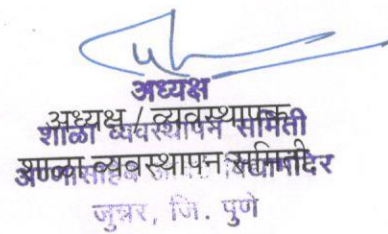 अध्यक्ष
अध्यक्ष / व्यवस्थापक
शाळा व्यवस्थापन समिती
शाळा व्यवस्थापन समिती
अण्णासाहेब विद्यामंदिर
जुन्नर, जि. पुणे